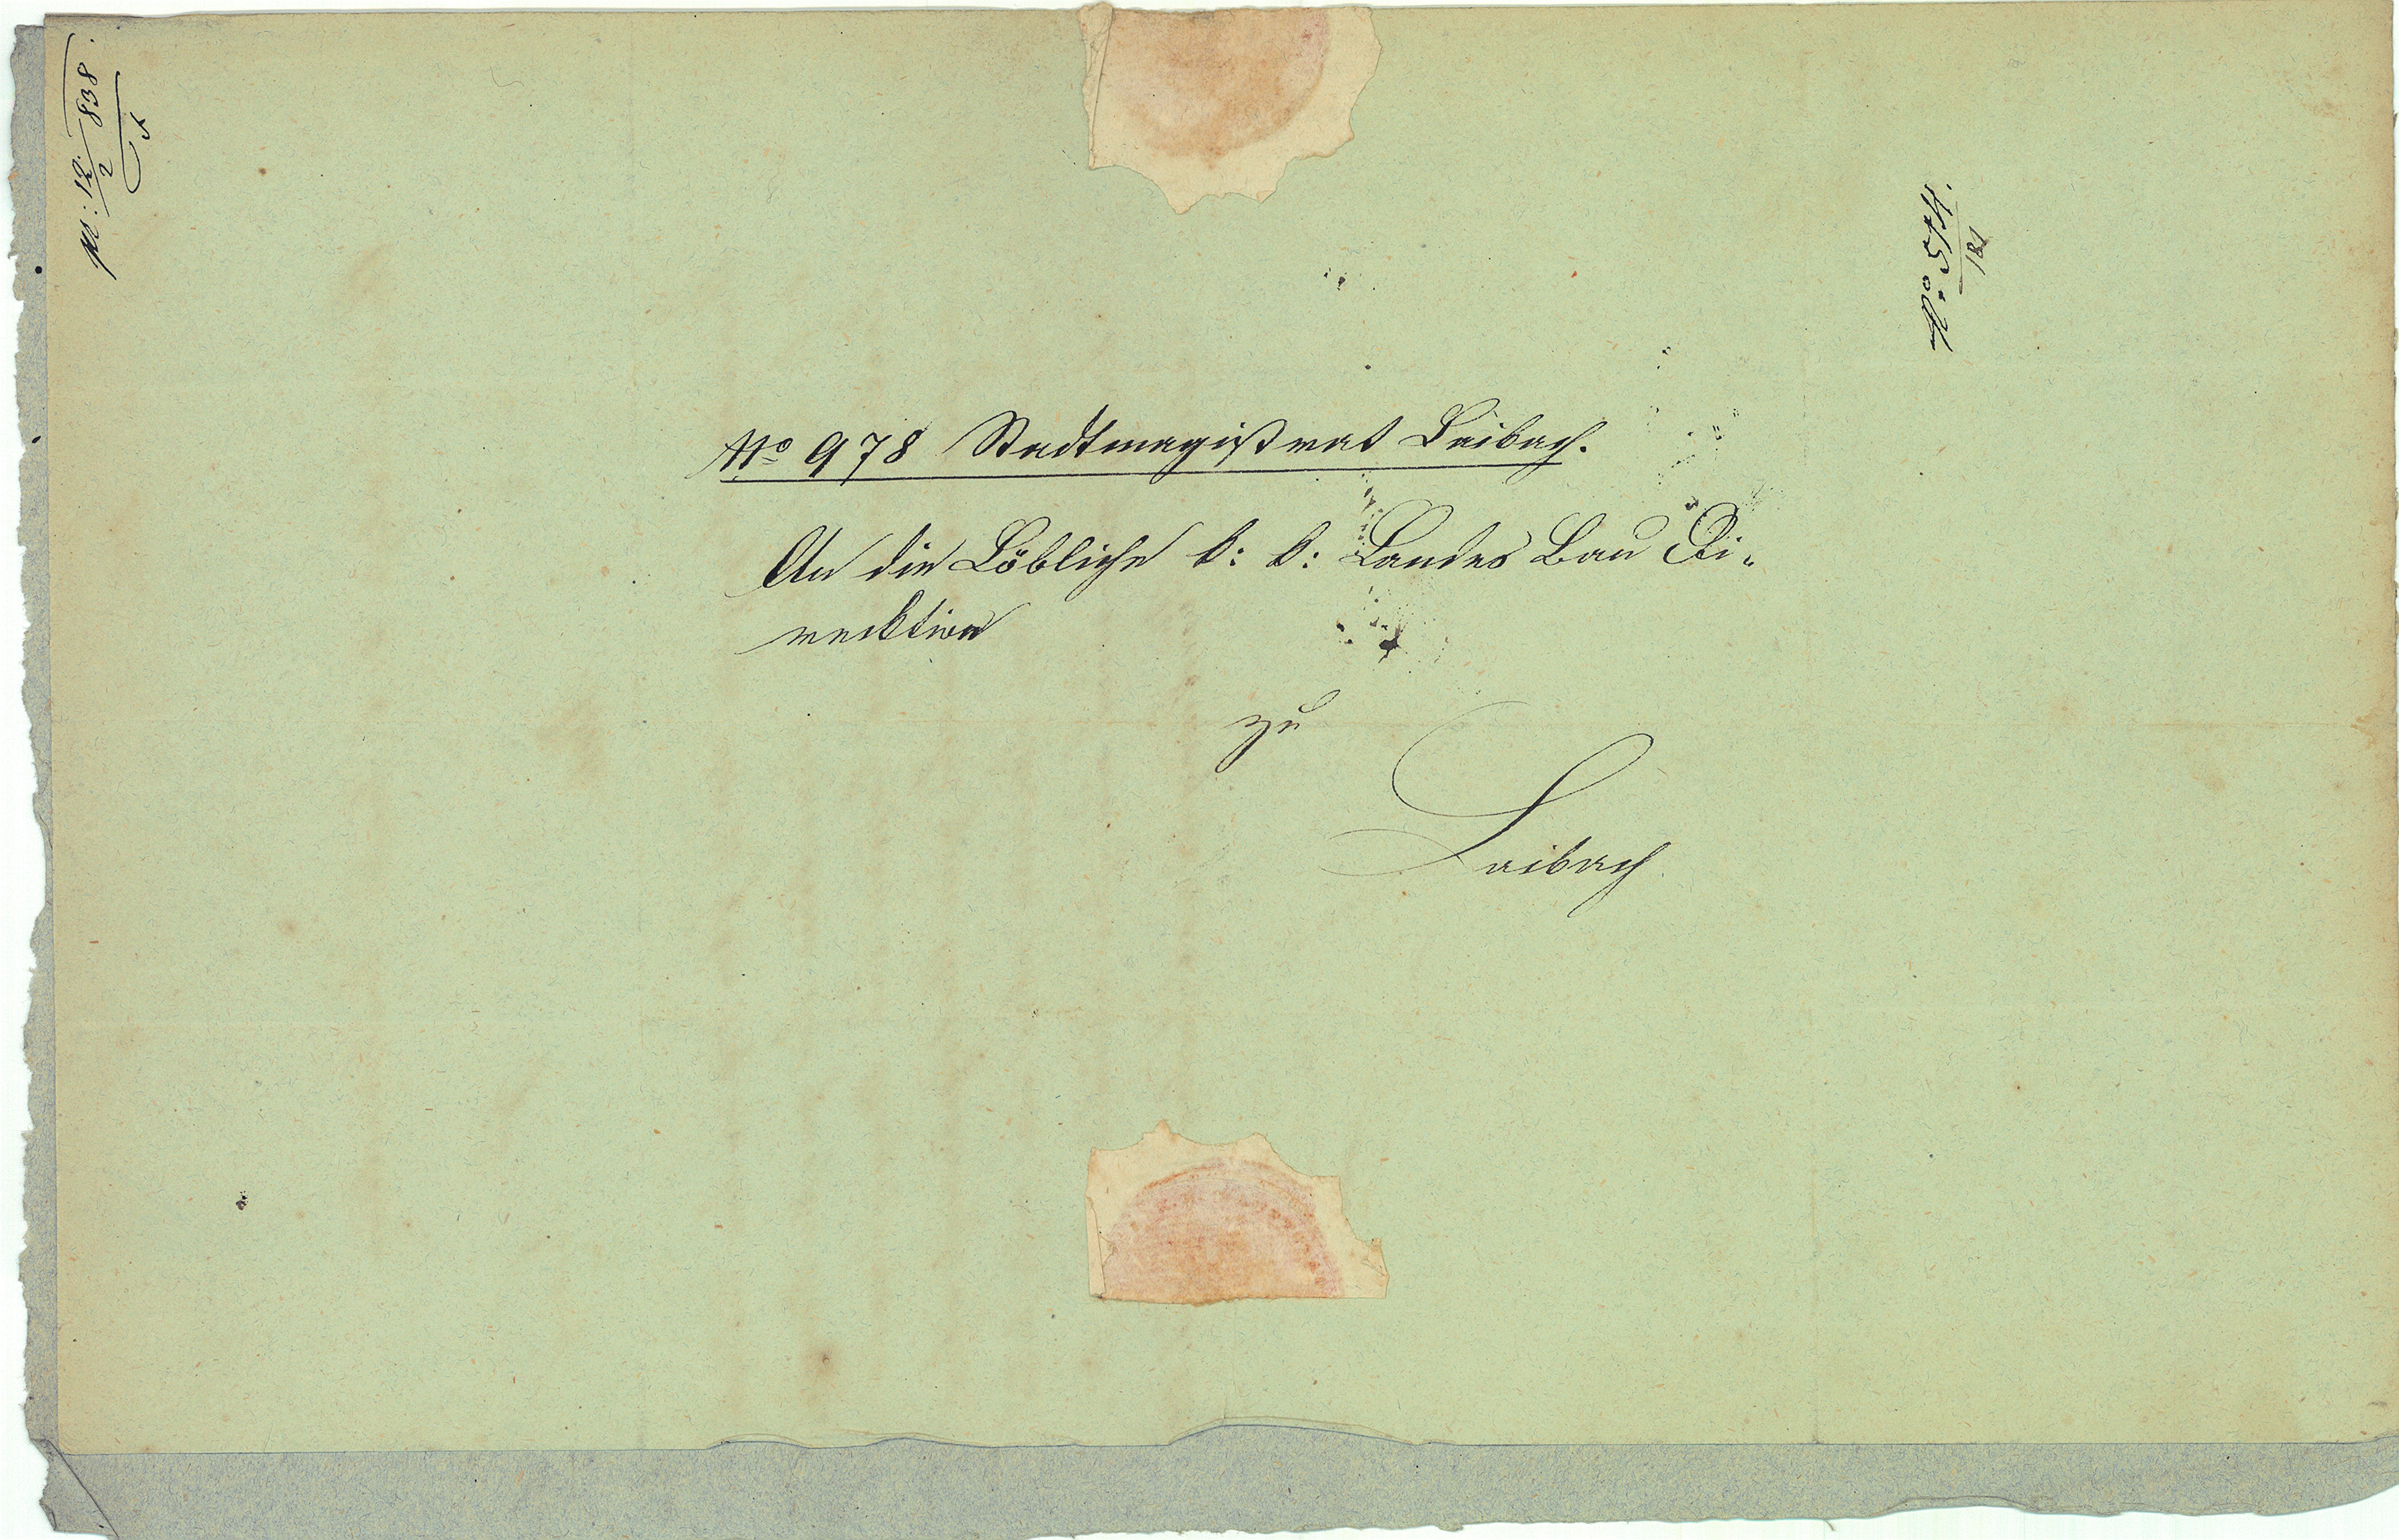 No 978 Stadtmagistrat Laibach.
An die Löbliche k: k: Landes Bau Di-
recktion
zu
Laibach
12/2 838.
No. 574.
181